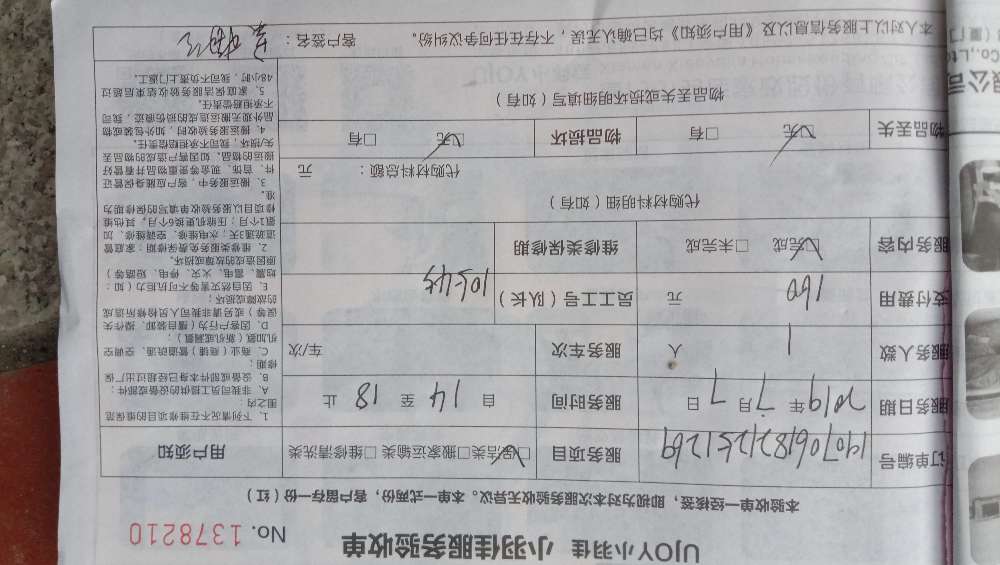 UJOY小羽佳 小羽佳服务验收单
No. 1378210
本验收单一经核签，即视为对本次服务验收无异议。本单一式两份，客户留存一份（红）
订单编号
服务项目 ☑保洁类□搬家运输类□维修清洗类
服务日期 2019年7月7日
服务时间 自14至18止
服务人数 1人
服务车次 车/次
支付费用 160元
员工工号（队长）
服务内容 ☑完成 □未完成
维修类保修期
代购材料明细（如有）
代购材料总额： 元
物品丢失 ☑无 □有
物品损坏 ☑无 □有
物品丢失或损坏明细填写（如有）
用户须知
1、下列情况不在维修项目的维保范
围之内：
A、非我司员工提供的设备或部件；
B、设备或部件本身已经超过出厂保
修期；
C、商业（商铺）管道疏通、空调空
机加氨（新机或漏氟）
D、因客户行为（擅自装卸、操作失
误等）或另请非我司人员检修所造成
的故障或损坏；
E、因自然灾害等不可抗拒力（如：
地震、雷电、火灾、停电、短路等）
原因造成的故障或损坏。
2、维修类服务免费保修期：家庭管
道疏通3天；水电维修、空调维修、加
氟1个月；压缩机更换6个月，其他维
修项目以服务验收单填写的保修期为
准。
3、搬运服务中，客户应随身保管证
件、首饰、现金等贵重物品并看管好
搬运的物品，如因客户造成的物品丢
失/损坏，我司不承担赔偿责任。
4、搬运服务验收时，如外包装或物
品外观无搬运造成的损伤痕迹，我司
不承担赔偿责任。
5、家庭保洁服务验收结束后超过
48小时，我司不负责上门返工。
本人对以上服务信息以及《用户须知》均已确认无误，不存在任何争议纠纷。 客户签名：